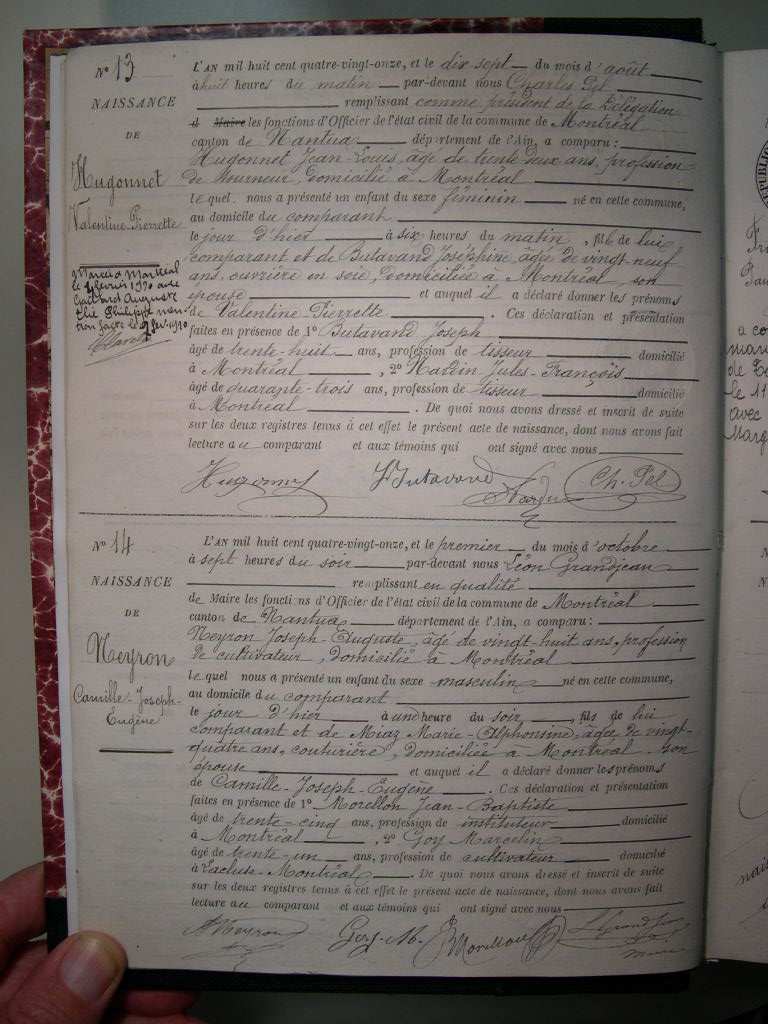 N° 13
NAISSANCE
DE
Hugonnet
Valentine-Pierrette
Marié à Montréal
le février 1920 avec
Auguste
Philippe men-
tion faite le
L'AN mil huit cent quatre-vingt-onze, et le dix sept du mois d'août
à huit heures du matin par-devant nous Charles Pel
remplissant comme président de la Délégation
d Maire les fonctions d'Officier de l'état civil de la commune de Montréal
canton de Nantua département de l'Ain, a comparu :
Hugonnet Jean-Louis, âgé de trente deux ans, profession
de tourneur, domicilié à Montréal
Le quel nous a présenté un enfant du sexe féminin né en cette commune,
au domicile du comparant
le jour d'hier à six heures du matin, fille de lui
comparant et de Butavand Joséphine, âgée de vingt-neuf
ans, ouvrière en soie, domiciliée à Montréal, son
épouse et auquel il a déclaré donner les prénoms
de Valentine-Pierrette. Ces déclaration et présentation
faites en présence de 1° Butavand Joseph
âgé de trente-huit ans, profession de tisseur domicilié
à Montréal, 2° Jules-François
âgé de quarante-trois ans, profession de tisseur domicilié
à Montréal. De quoi nous avons dressé et inscrit de suite
sur les deux registres tenus à cet effet le présent acte de naissance, dont nous avons fait
lecture au comparant et aux témoins qui ont signé avec nous
Hugonnet Butavand Ch. Pel
N° 14
NAISSANCE
DE
Neyron
Camille-Joseph-
Eugène
L'AN mil huit cent quatre-vingt-onze, et le premier du mois d'octobre
à sept heures du soir par-devant nous Léon Grandjean
remplissant en qualité
de Maire les fonctions d'Officier de l'état civil de la commune de Montréal
canton de Nantua département de l'Ain, a comparu :
Neyron Joseph-Auguste, âgé de vingt-huit ans, profession
de cultivateur, domicilié à Montréal
Le quel nous a présenté un enfant du sexe masculin né en cette commune,
au domicile du comparant
le jour d'hier à une heure du soir, fils de lui
comparant et de Miaz Marie-Alphonsine, âgée de vingt-
quatre ans, couturière, domiciliée à Montréal son
épouse et auquel il a déclaré donner les prénoms
de Camille-Joseph-Eugène. Ces déclaration et présentation
faites en présence de 1° Morellon Jean-Baptiste
âgé de trente-cinq ans, profession de instituteur domicilié
à Montréal, 2° Goy Marcelin
âgé de trente-un ans, profession de cultivateur domicilié
à Lacluse-Montréal. De quoi nous avons dressé et inscrit de suite
sur les deux registres tenus à cet effet le présent acte de naissance, dont nous avons fait
lecture au comparant et aux témoins qui ont signé avec nous
Neyron Goy-M. Morellon L. Grandjean
maire